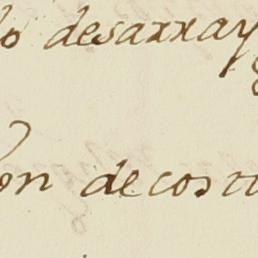 lo desarray
on de costu